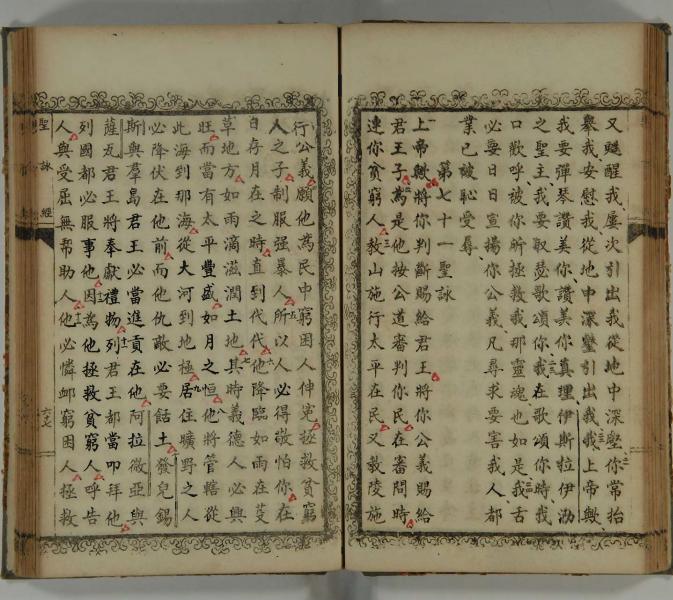 又甦醒我屢次引出我從地中深壑你常抬
舉我安慰我從地中深壑引出我我上帝歟
我要彈琴讚美你讚美你真理伊斯拉伊泐
之聖主我要取瑟歌頌你我在歌頌你時我
口歡呼被你所拯救我那靈魂也如是我舌
必要日日宣揚你公義凡尋求要害我人都
業已被恥受辱
第七十一聖詠
上帝歟將你判斷賜給君王將你公義賜給
君王子為是他按公道審判你民在審問時
連你貧窮人教山施行太平在民又教陵施
行公義願他為民中窮困人伸冤拯救貧窮
人之子制服强暴人所以人必得敬怕你在
日存月在之時直到代代他降臨如雨在芟
草地方如雨滴滋潤土地其時義德人必興
旺而當有太平豐盛如月之恒他將管轄從
此海到那海從大河到地極居住曠野之人
必降伏在他前而他仇敵必要餂土發兒錫
斯與羣島君王必當進貢在他阿拉微亞與
薩瓦君王將奉獻禮物列君王都當叩拜他
列國都必服事他因為他拯救貧窮人呼告
人與受屈無帮助人他必憐卹窮困人拯救
聖詠經